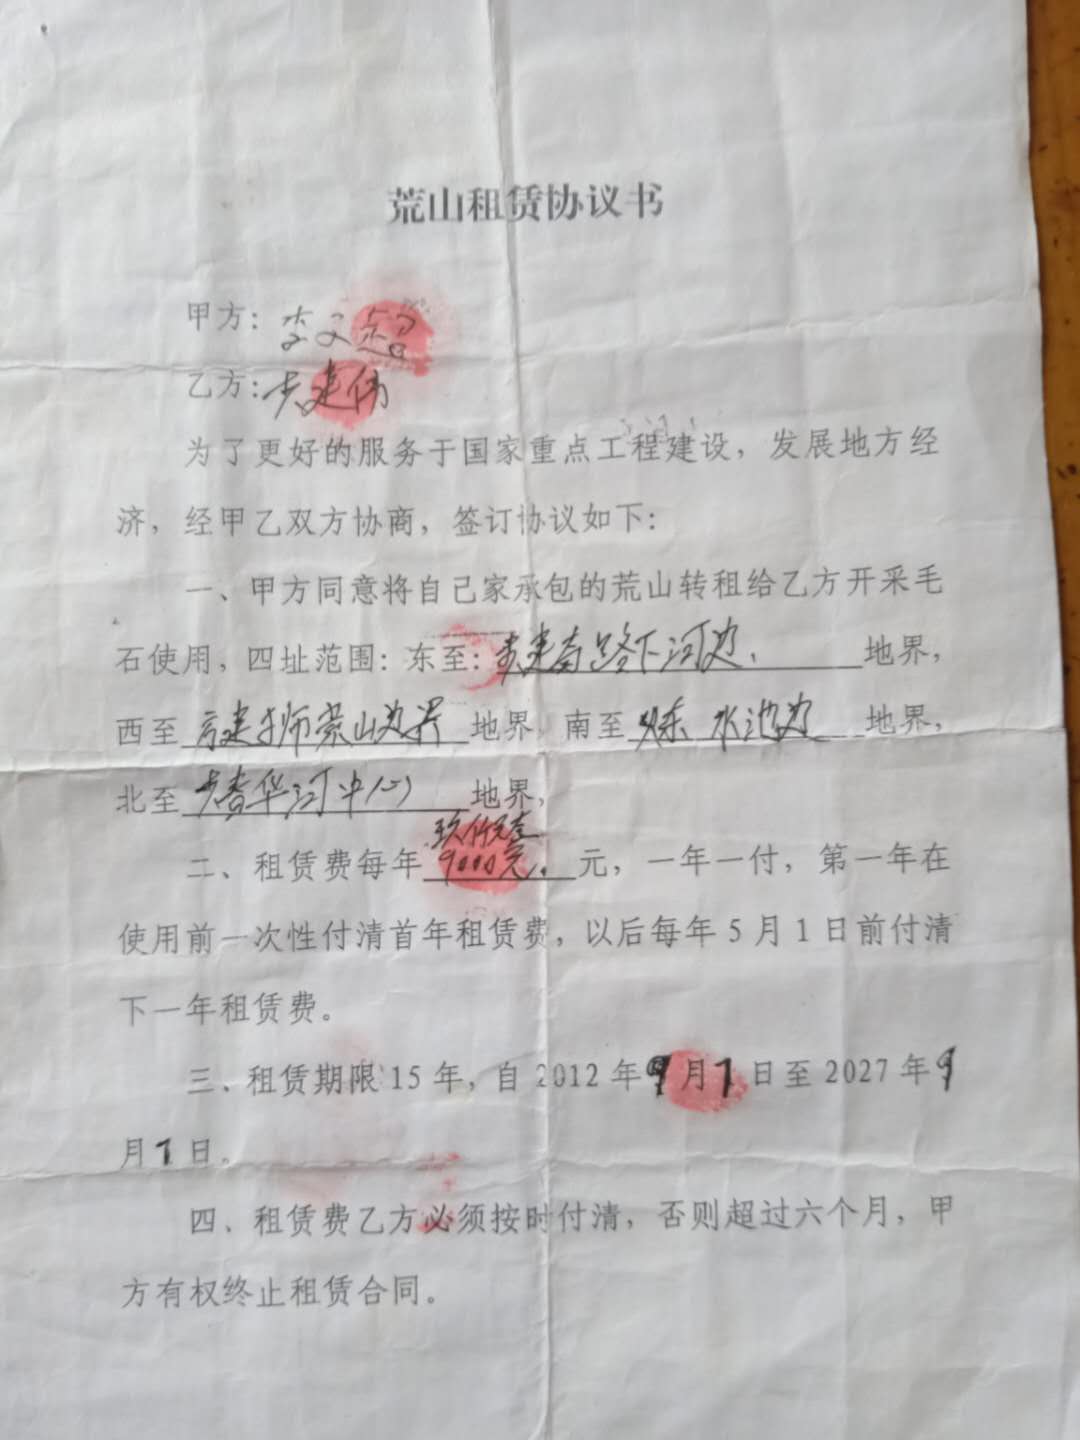 荒山租赁协议书
甲方：李
乙方：建伟
为了更好的服务于国家重点工程建设，发展地方经
济，经甲乙双方协商，签订协议如下：
一、甲方同意将自己家承包的荒山转租给乙方开采毛
石使用，四址范围：东至：建 路下河边、地界，
西至 建 师荒山边界 地界，南至 水池边 地界，
北至 春华河中心 地界，
玖仟元壹
二、租赁费每年 9000元、元，一年一付，第一年在
使用前一次性付清首年租赁费，以后每年5月1日前付清
下一年租赁费。
三、租赁期限15年，自2012年9月1日至2027年9
月1日。
四、租赁费乙方必须按时付清，否则超过六个月，甲
方有权终止租赁合同。